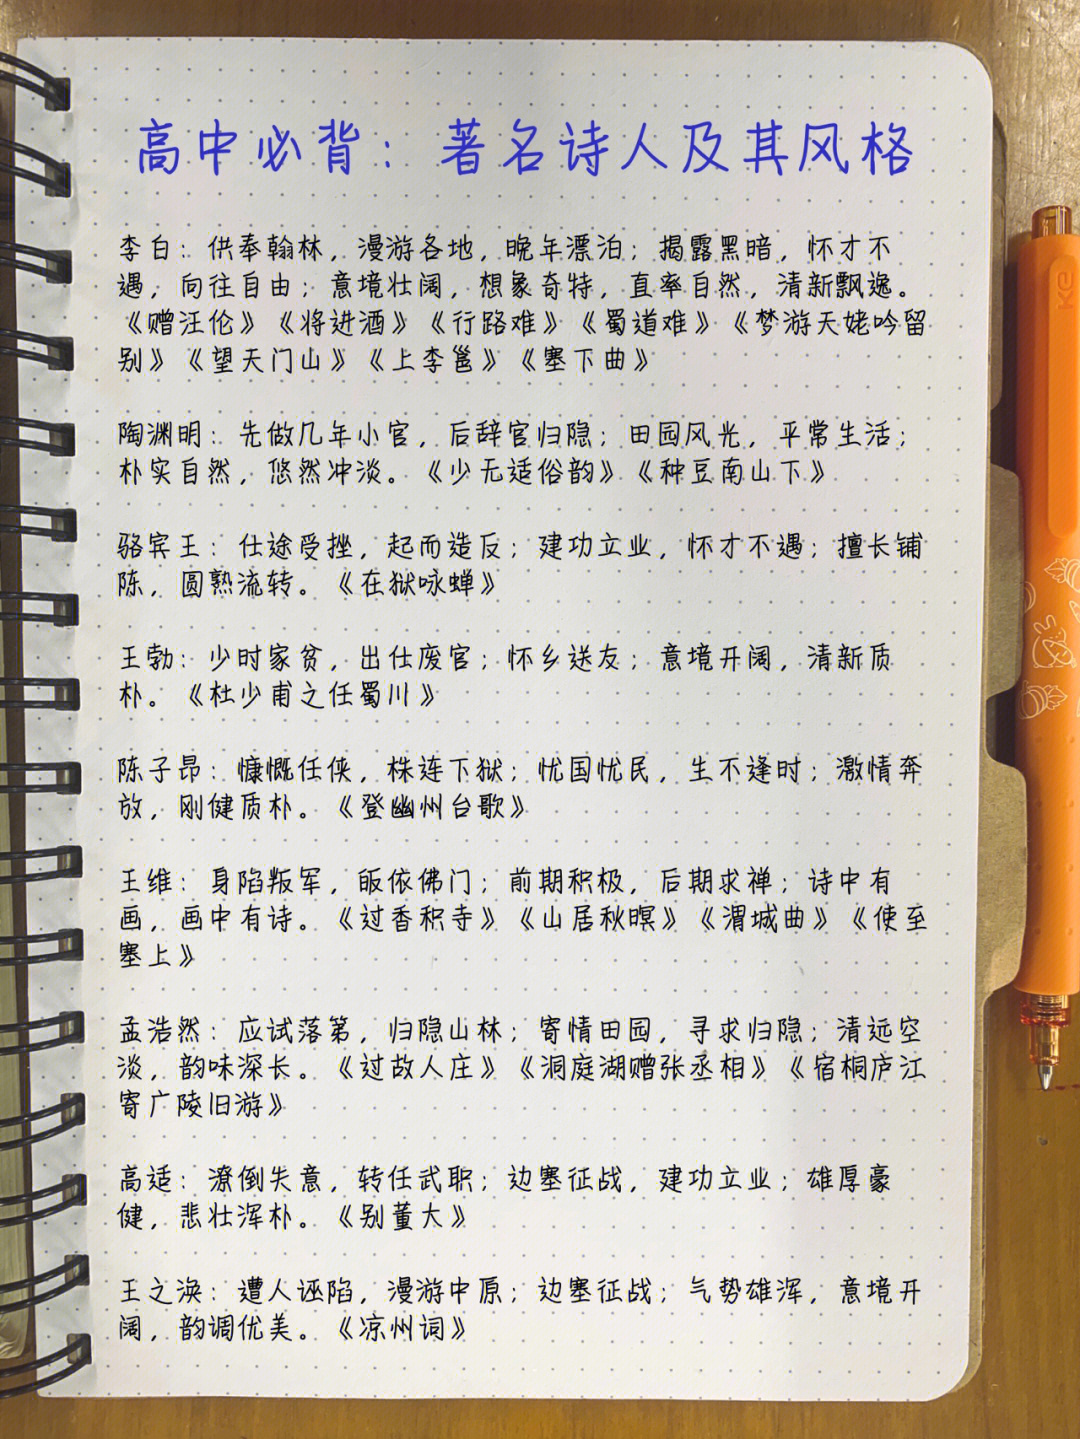 高中必背：著名诗人及其风格
李白：供奉翰林，漫游各地，晚年漂泊；揭露黑暗，怀才不
遇，向往自由；意境壮阔，想象奇特，直率自然，清新飘逸。
《赠汪伦》《将进酒》《行路难》《蜀道难》《梦游天姥吟留
别》《望天门山》《上李邕》《塞下曲》
陶渊明：先做几年小官，后辞官归隐；田园风光，平常生活；
朴实自然，悠然冲淡。《少无适俗韵》《种豆南山下》
骆宾王：仕途受挫，起而造反；建功立业，怀才不遇；擅长铺
陈，圆熟流转。《在狱咏蝉》
王勃：少时家贫，出仕废官；怀乡送友；意境开阔，清新质
朴。《杜少甫之任蜀川》
陈子昂：慷慨任侠，株连下狱；忧国忧民，生不逢时；激情奔
放，刚健质朴。《登幽州台歌》
王维：身陷叛军，皈依佛门；前期积极，后期求禅；诗中有
画，画中有诗。《过香积寺》《山居秋暝》《渭城曲》《使至
塞上》
孟浩然：应试落第，归隐山林；寄情田园，寻求归隐；清远空
淡，韵味深长。《过故人庄》《洞庭湖赠张丞相》《宿桐庐江
寄广陵旧游》
高适：潦倒失意，转任武职；边塞征战，建功立业；雄厚豪
健，悲壮浑朴。《别董大》
王之涣：遭人诬陷，漫游中原；边塞征战；气势雄浑，意境开
阔，韵调优美。《凉州词》